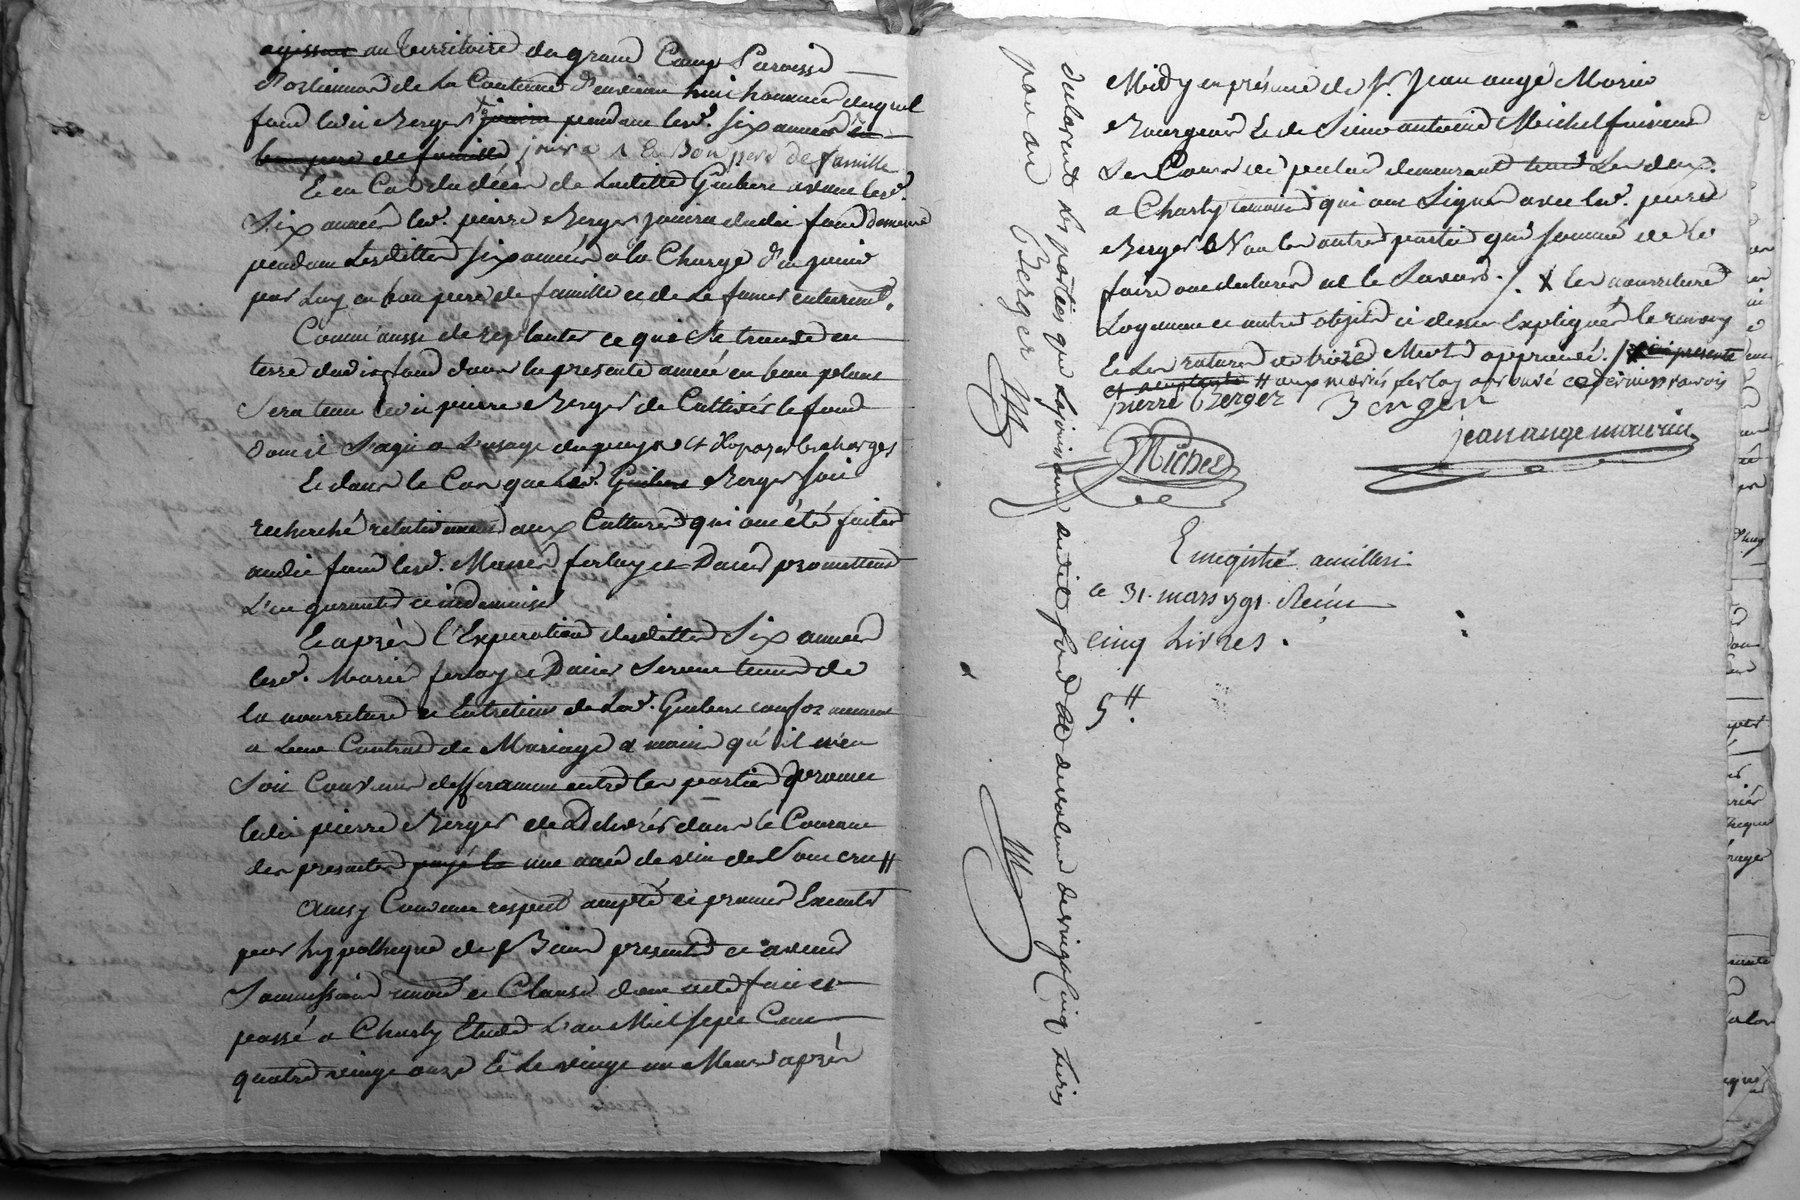 agissant au territoire du grand Camp Paroisse
d'orlienas de la Contenue d'environ huit hommées duquel
fond ledit Berger jouira pendant lesd. six années en
bon pere de famille jouira en Bon pere de famille
Et en Cas du décès de laditte Guibert avant lesd.
Six années led. pierre Berger jouira dudit fond
pendant Lesdittes six années a la Charge d'en jouir
par Luy en bon pere de famille et de le fumer
Comm'aussi de replanter ce qui se trouve en
terre dudit fond dans la presente année en bon
Sera tenu ledit pierre Berger de Cultiver le fond
dont il s'agit a L'usage du pays et d'en payer les charges
Et dans le Cas que led. Guibert Berger soit
recherché relativement aux Cultures qui ont été faites
audit fond lesd. Mariés ferlay et Dacier promettent
L'en garantir et indemniser
Et après l'Expiration desdittes Six années
lesd. Mariés ferlay et Dacier seront tenus de
la nourriture et Entretien de Lad. Guibert conformement
a leur Contrat de Mariage a moins qu'il n'en
soit Convenu differamment entre les parties promet
ledit pierre Berger de Délivrer dans le Courant
des presentes payé la une anée de vin de son cru #
Ainsy Convenu respect accepté et promis Executer
par hypotheque de Biens presents et avenir
Soumissions et Clauses dont acte fait et
passé a Charly Etude L'an Mil sept Cent
quatre vingt onze Et le vingt un Mars après
Midy en présence de Sr. Jean ange Morin
Bourgeois Et de Sieur antoine Michel suivant
Les Cours de palais demeurant tous Les deux
a Charly temoins qui ont Signé avec led. pierre
Berger & Non les autres parties qui sommé de le
faire ont declaré ne le Savoir. /. X les nourriture
Logement et autre objets ci dessus Expliqués le renvoy
Et Les ratures et brisé Mots approuvé. / X
# aux mariés ferlay aprouvé ce dernier ranvois
pierre Berger Berger
jean ange mourin
Michel
Enregistré a millery
le 31. mars 1791. Reçu
cinq Livres.
5 #.
declarent les parties que la jouissance dudit fond est de valeur de vingt cinq livres
par an Berger